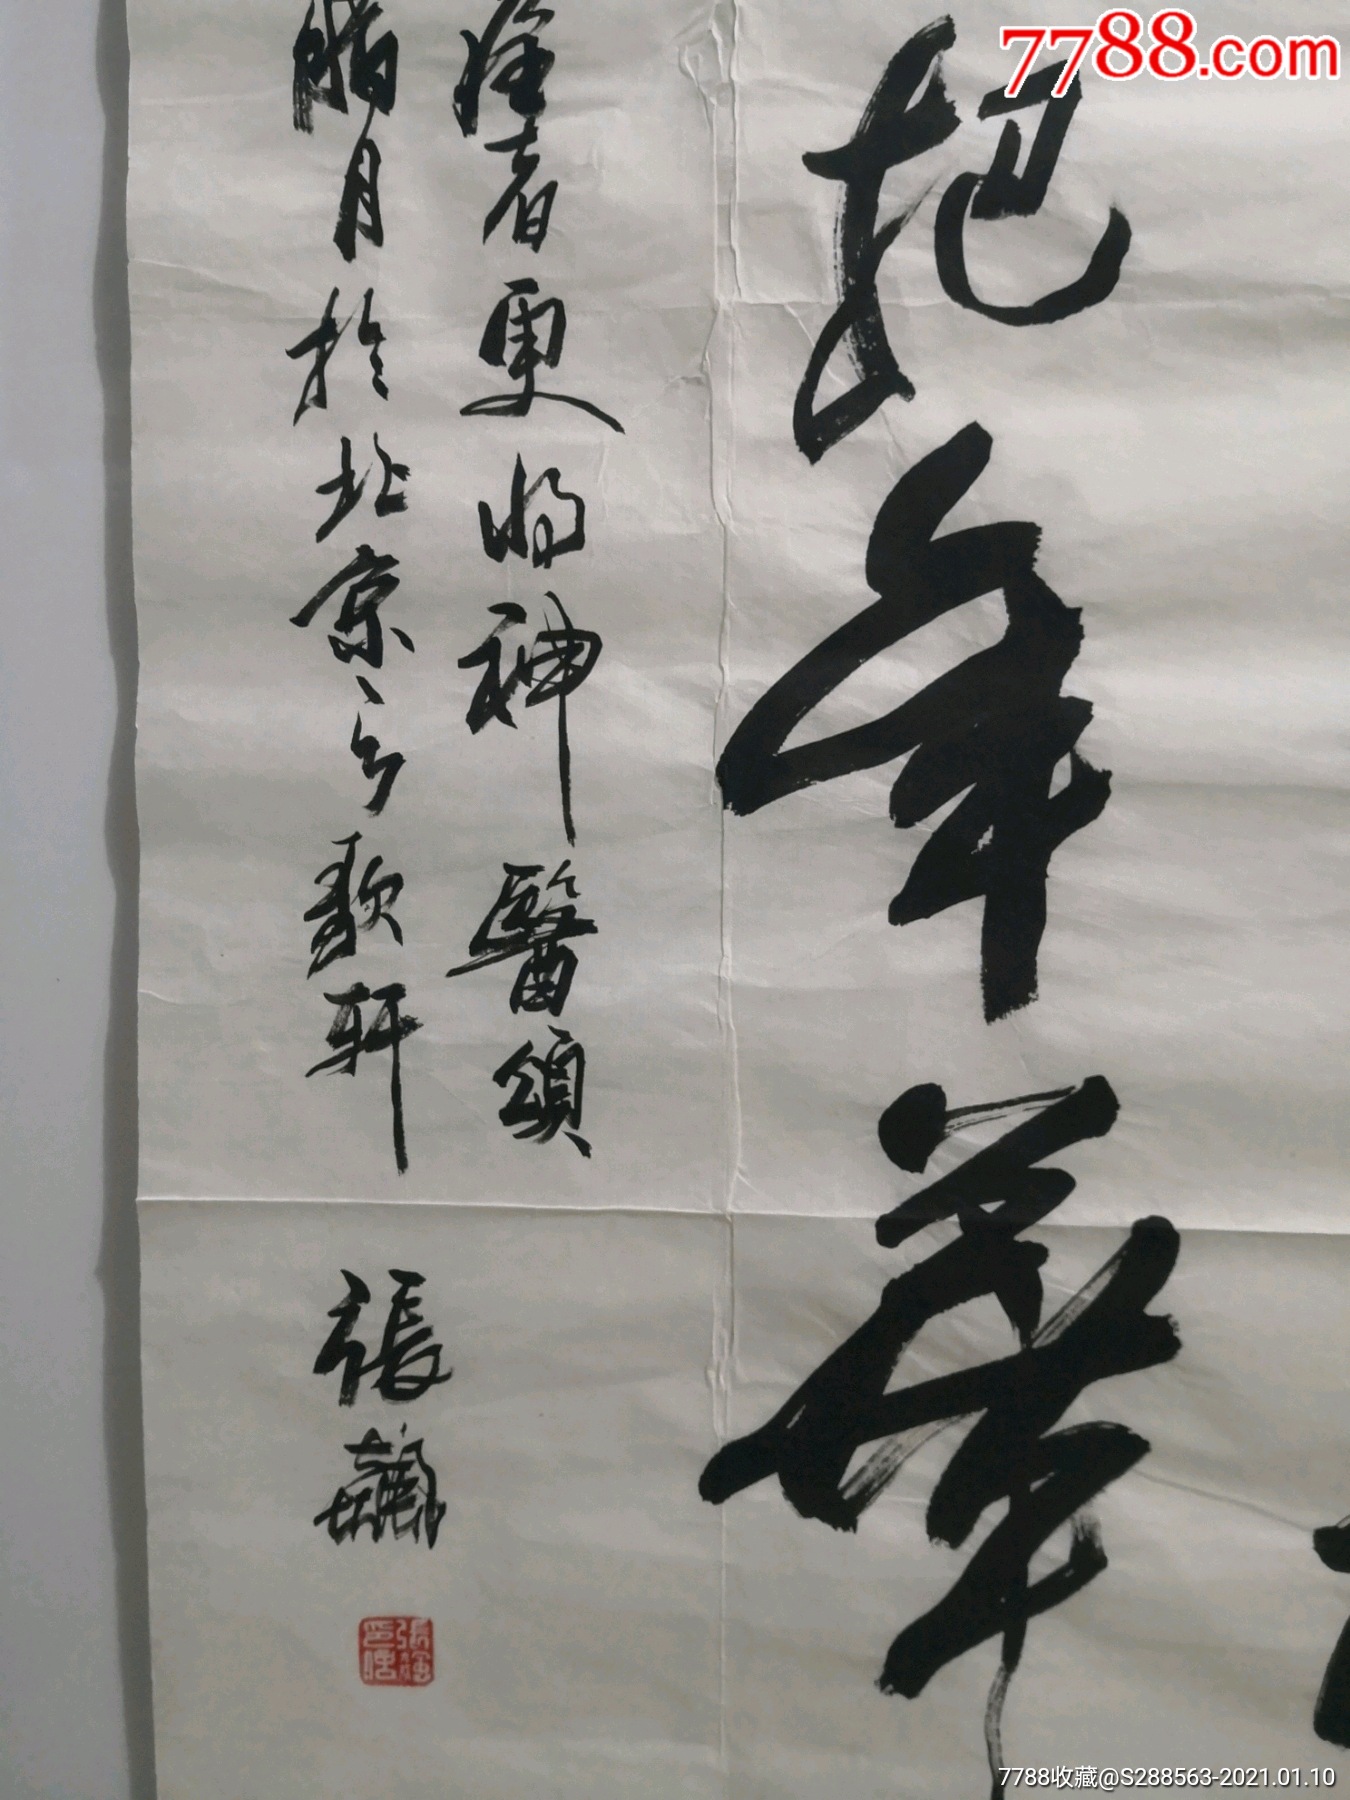 7788.com
把年華
者更將神醫頌
腊月於北京之歌軒
張
7788收藏@S288563-2021.01.10